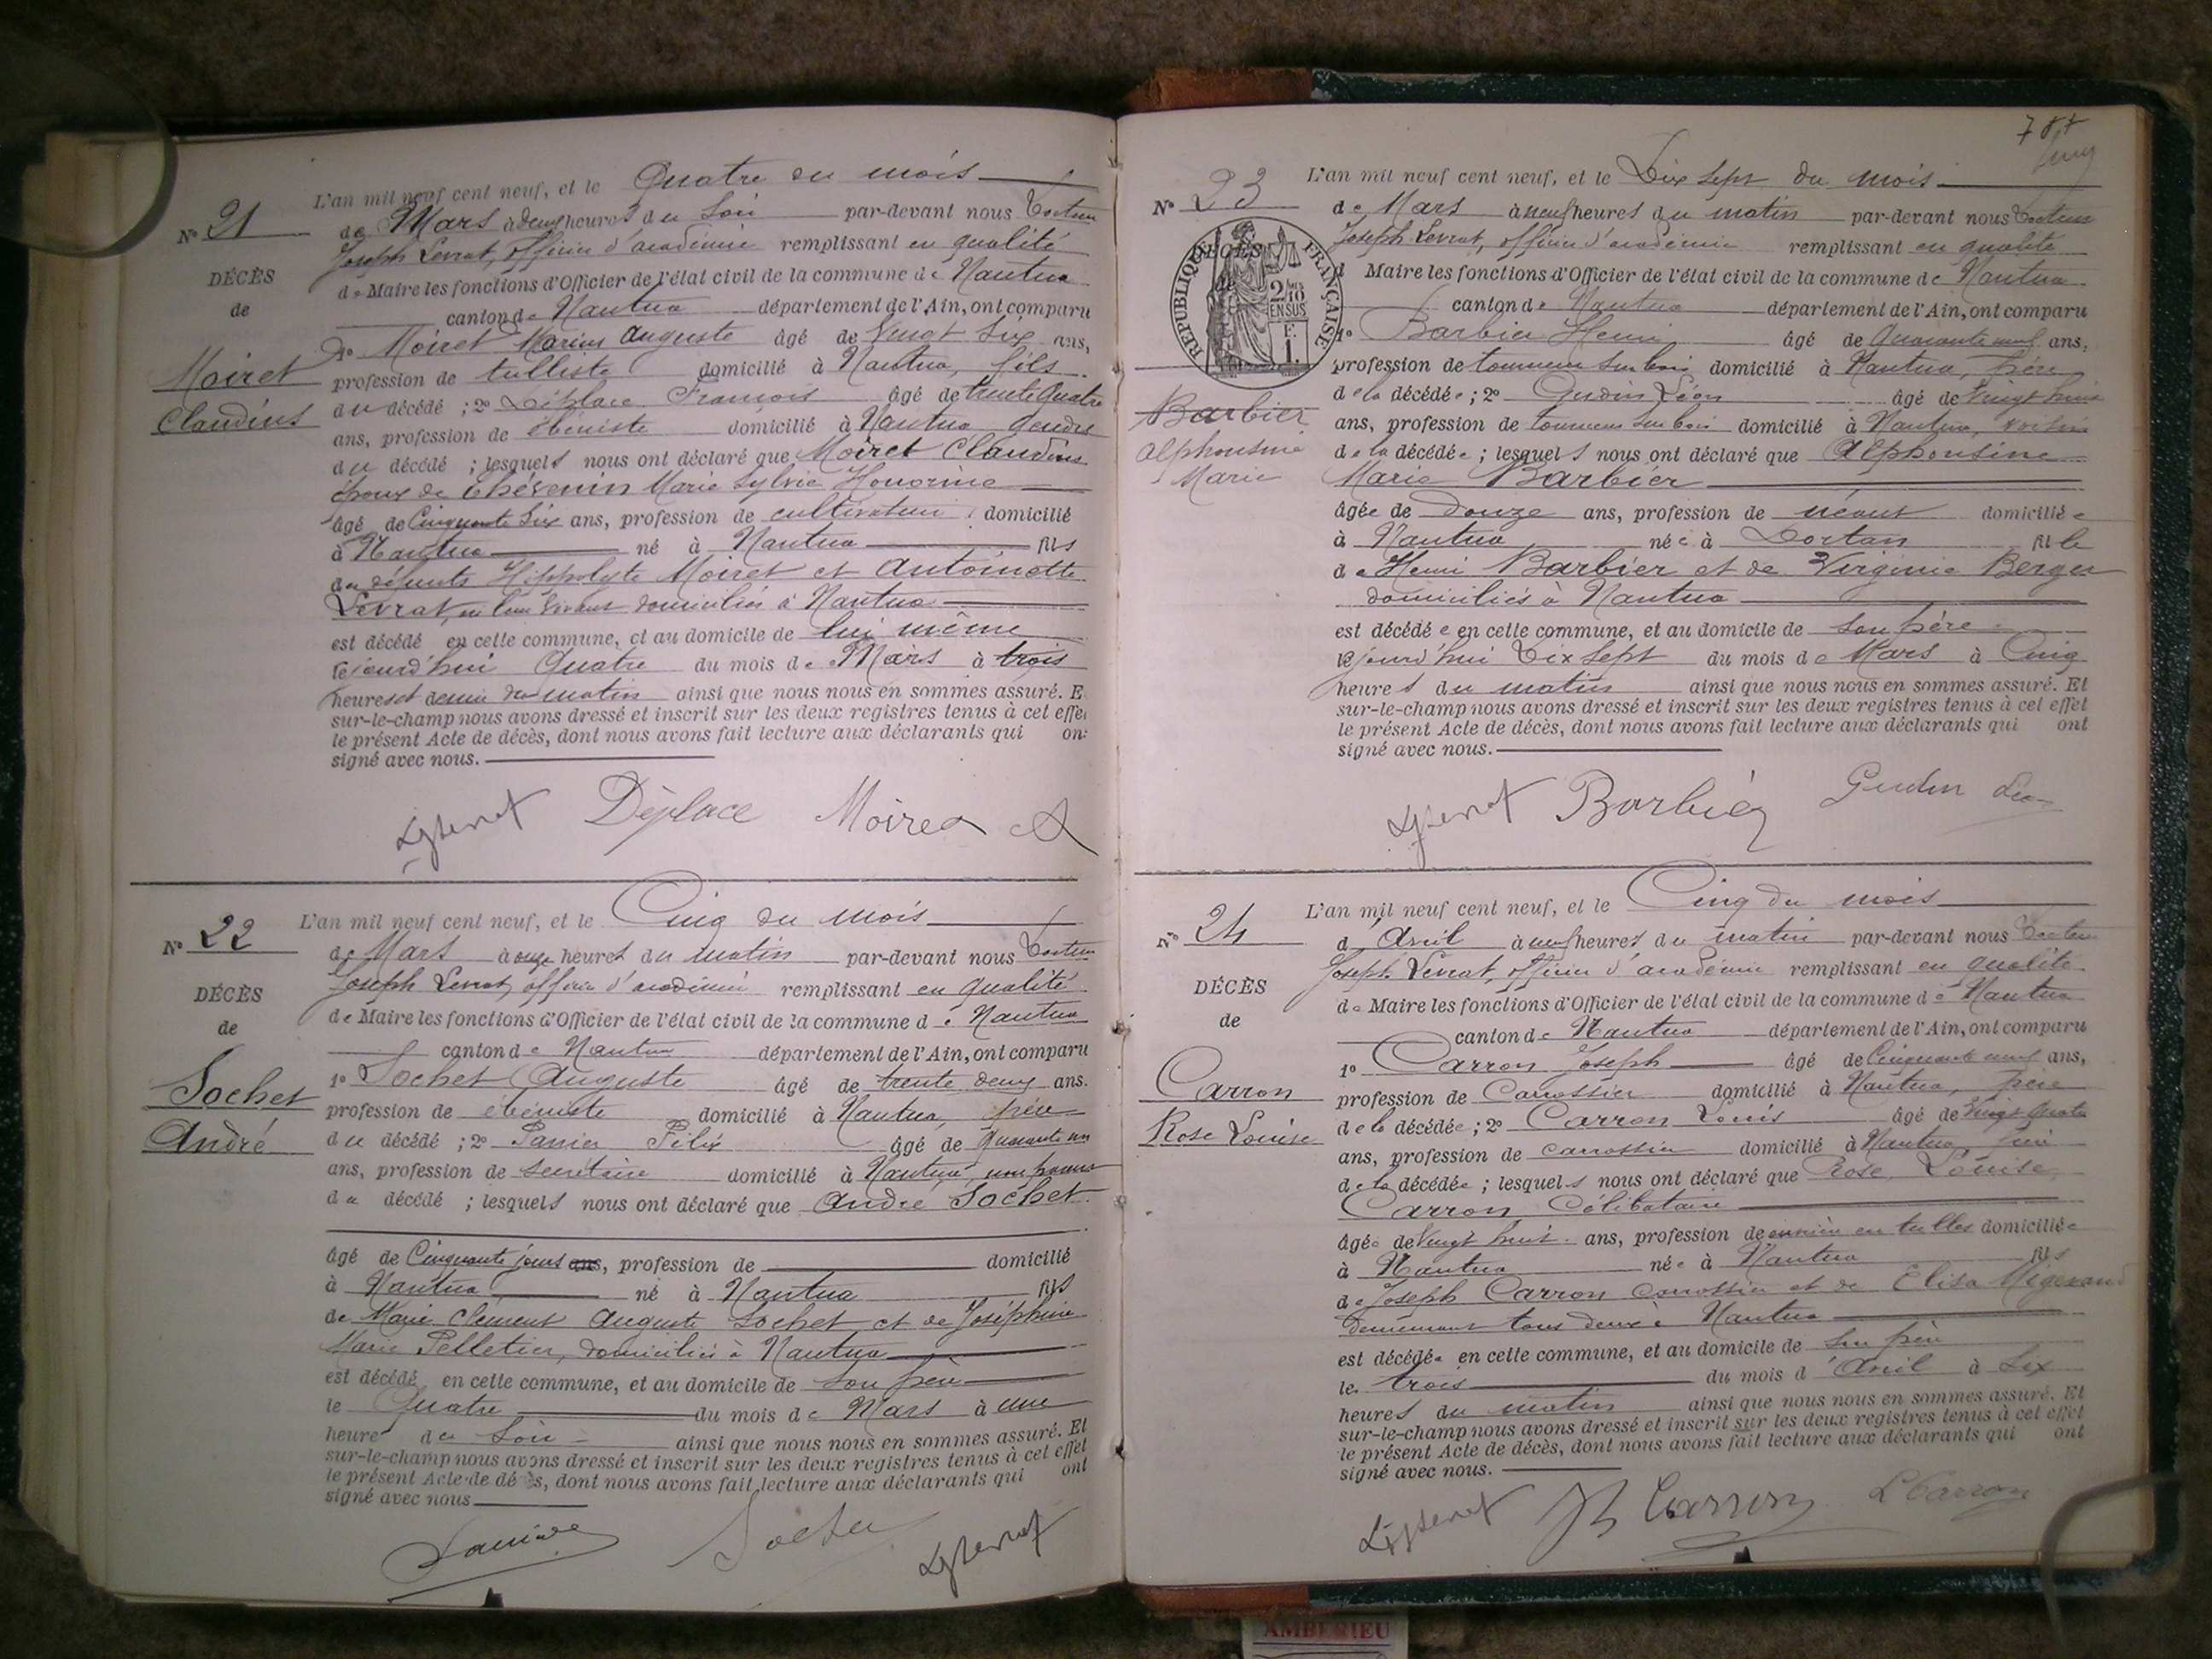 L'an mil neuf cent neuf, et le Quatre du mois
N° 21
de Mars à deux heures du Soir par-devant nous Docteur
Joseph Levrat, officier d'académie remplissant en qualité
DÉCÈS
de Maire les fonctions d'Officier de l'état civil de la commune de Nantua
de
canton de Nantua département de l'Ain, ont comparu
1° Moiret Marius Auguste âgé de Vingt Six ans,
Moiret
profession de tulliste domicilié à Nantua, fils
Claudius
du décédé ; 2° Déplace François âgé de trente Quatre
ans, profession de ébéniste domicilié à Nantua gendre
du décédé ; lesquels nous ont déclaré que Moiret Claudius
époux de Thévenin Marie Sylvie Honorine
âgé de Cinquante Six ans, profession de cultivateur domicilié
à Nantua né à Nantua fils
des défunts Hippolyte Moiret et Antoinette
Levrat, en leur vivant domiciliés à Nantua
est décédé en cette commune, et au domicile de lui même
cejourd'hui Quatre du mois de Mars à trois
heures et demie du matin ainsi que nous nous en sommes assuré. E
sur-le-champ nous avons dressé et inscrit sur les deux registres tenus à cet effet
le présent Acte de décès, dont nous avons fait lecture aux déclarants qui ont
signé avec nous.
Déplace Moiret A
L'an mil neuf cent neuf, et le Cinq du mois
N° 22
de Mars à onze heures du matin par-devant nous Docteur
Joseph Levrat, officier d'académie remplissant en qualité
DÉCÈS
de Maire les fonctions d'Officier de l'état civil de la commune de Nantua
de
canton de Nantua département de l'Ain, ont comparu
1° Sochet Auguste âgé de trente deux ans.
Sochet
profession de ébéniste domicilié à Nantua, père
André
du décédé ; 2° Panier Félix âgé de Quarante un
ans, profession de secrétaire domicilié à Nantua, non parent
du décédé ; lesquels nous ont déclaré que André Sochet
âgé de Cinquante jours ans, profession de domicilié
à Nantua né à Nantua fils
de Marie Clément Auguste Sochet et de Joséphine
Marie Pelletier, domiciliés à Nantua
est décédé en cette commune, et au domicile de son père
le Quatre du mois de Mars à une
heure du Soir ainsi que nous nous en sommes assuré. Et
sur-le-champ nous avons dressé et inscrit sur les deux registres tenus à cet effet
le présent Acte de décès, dont nous avons fait lecture aux déclarants qui ont
signé avec nous
L'an mil neuf cent neuf, et le Dix Sept du mois
N° 23
de Mars à neuf heures du matin par-devant nous Docteur
Joseph Levrat, officier d'académie remplissant en qualité
DÉCÈS
RÉPUBLIQUE FRANÇAISE
2/10 EN SUS
F. 1.
d Maire les fonctions d'Officier de l'état civil de la commune de Nantua
canton de Nantua département de l'Ain, ont comparu
1° Barbier Henri âgé de Quarante neuf ans,
profession de tourneur sur bois domicilié à Nantua, père
Barbier
de la décédée ; 2° Gudin Léon âgé de Vingt huit
ans, profession de tourneur sur bois domicilié à Nantua, voisin
Alphonsine
de la décédée ; lesquels nous ont déclaré que Alphonsine
Marie
Marie Barbier
âgée de Douze ans, profession de néant domiciliée
à Nantua née à Dortan fille
de Henri Barbier et de Virginie Berger
domiciliés à Nantua
est décédée en cette commune, et au domicile de son père
cejourd'hui Dix Sept du mois de Mars à Cinq
heures du matin ainsi que nous nous en sommes assuré. Et
sur-le-champ nous avons dressé et inscrit sur les deux registres tenus à cet effet
le présent Acte de décès, dont nous avons fait lecture aux déclarants qui ont
signé avec nous.
Barbier Gudin Léon
L'an mil neuf cent neuf, et le Cinq du mois
N° 24
d'Avril à neuf heures du matin par-devant nous Docteur
Joseph Levrat, officier d'académie remplissant en qualité
DÉCÈS
de Maire les fonctions d'Officier de l'état civil de la commune de Nantua
de
canton de Nantua département de l'Ain, ont comparu
1° Carron Joseph âgé de Cinquante neuf ans,
Carron
profession de Carrossier domicilié à Nantua, père
Rose Louise
de la décédée ; 2° Carron Louis âgé de Vingt Quatre
ans, profession de carrossier domicilié à Nantua, frère
de la décédée ; lesquels nous ont déclaré que Rose Louise
Carron Célibataire
âgée de Vingt huit ans, profession de ouvrière en tulles domiciliée
à Nantua née à Nantua fils
de Joseph Carron carrossier et de Elisa
demeurant tous deux à Nantua
est décédée en cette commune, et au domicile de son père
le trois du mois d'Avril à Six
heures du matin ainsi que nous nous en sommes assuré. Et
sur-le-champ nous avons dressé et inscrit sur les deux registres tenus à cet effet
le présent Acte de décès, dont nous avons fait lecture aux déclarants qui ont
signé avec nous.
Carron L Carron
AMBÉRIEU